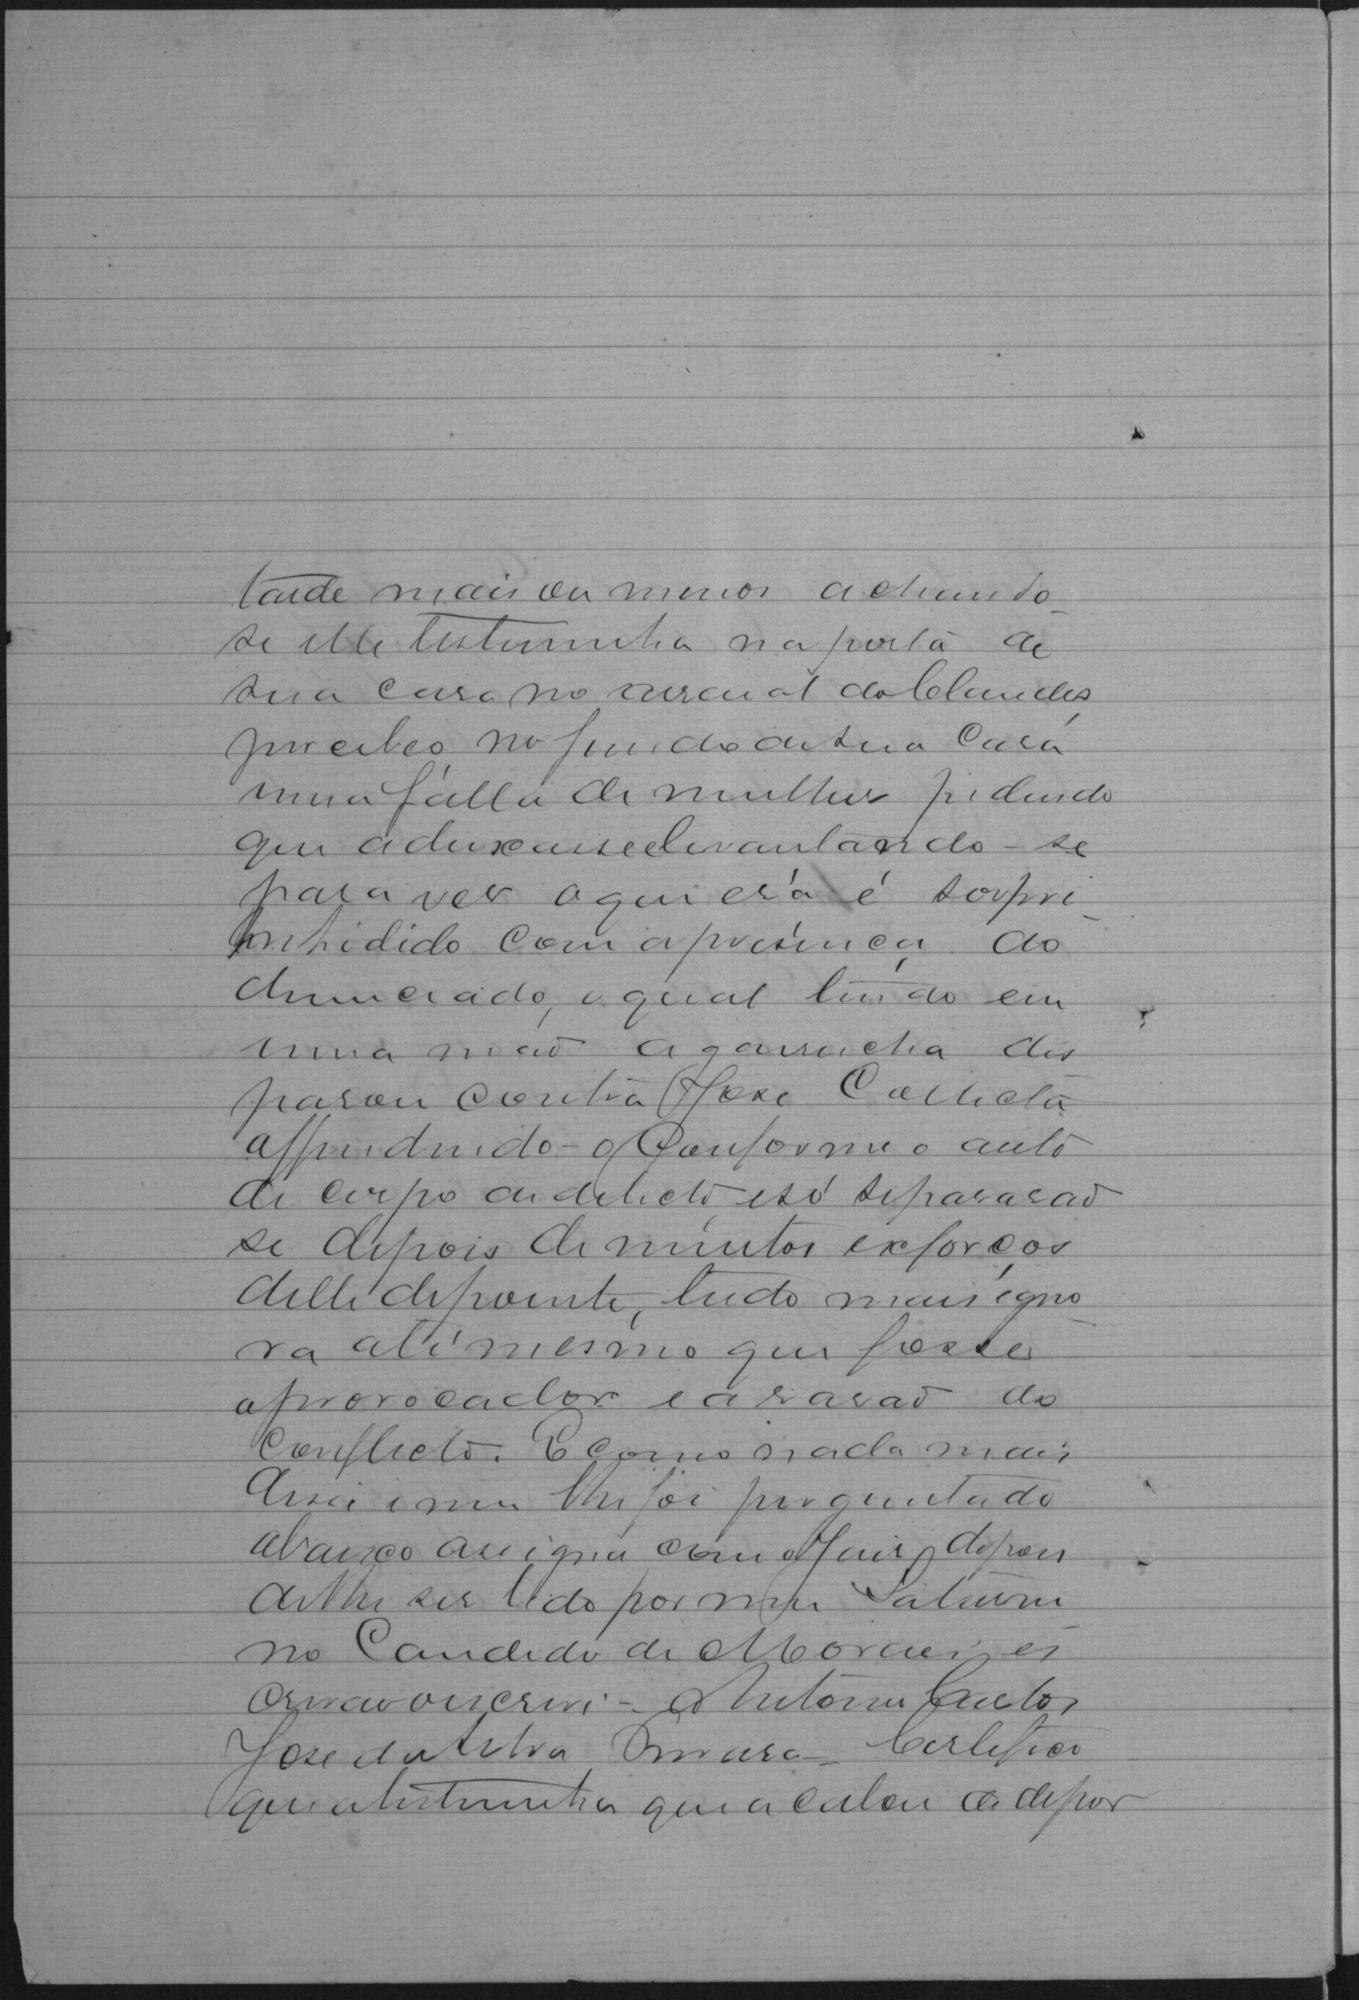 tarde mais ou menos achando
se elle testemunha na porta de
sua casa no arraial do Claudio
percebeo no fundo de sua Casa
uma falla de mulher pidindo
que a deixasse e levantando-se
para ver o que era é sorpri
hidido com a presença do
denunciado, o qual tendo em
uma mão a garrucha dis
parou contra José Calheta
offendendo-o Conforme o auto
de corpo de delicto e só separarão
se depois de muitos exforços
delle depoente, tudo mais igno
ra até mesmo que fosse
o provocador e a rasão do
Conflicto. E como nada mais
disse e nem lhe foi perguntado
abaixo assigna com o Juiz depois
de lhe ser lido por mim Saturni
no Candido de Moraes es
crivão o escrivi - Antonio Santos
José da Silva Certifico
que a testemunha que acabou de depor